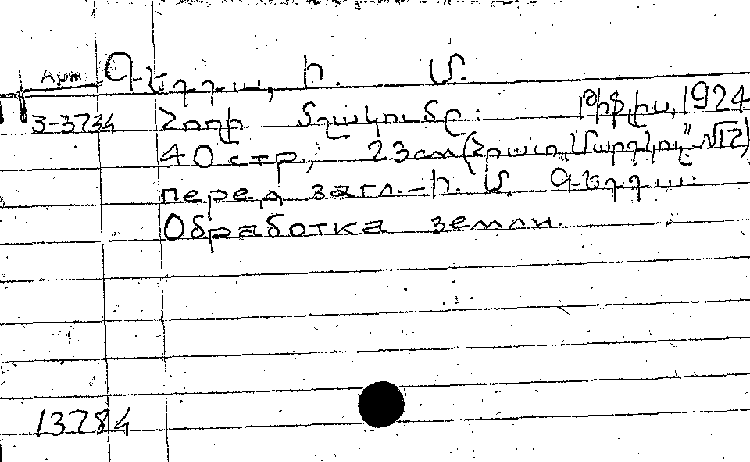 Арм. Գեղղա, Ի. Մ.
3-3734 Հողի մշակումը: Թիֆլիս, 1924
40 стр., 23 см (Հրատ. „Մարտկոչ" №12)
перед загл.-Ի. Մ. Գեղղա:
Обработка земли.
13784